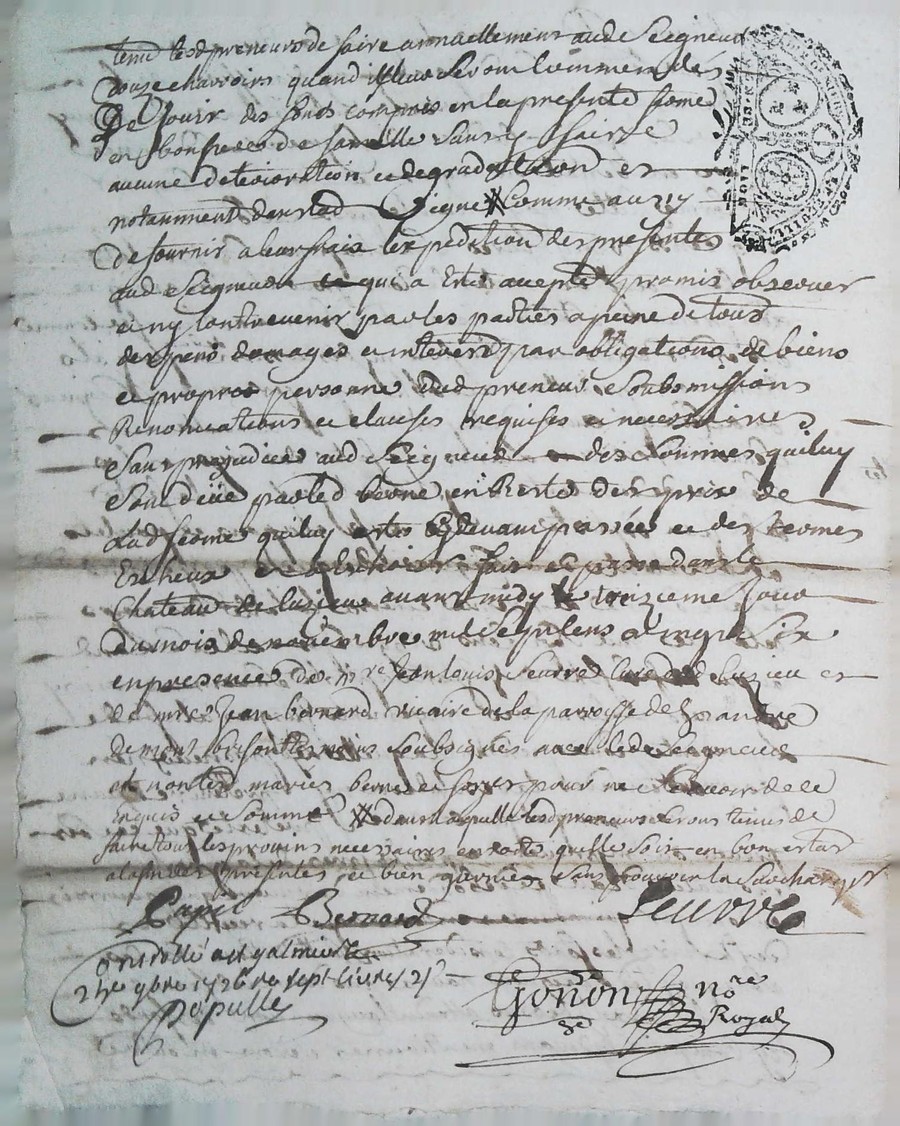 tenu lesd preneurs de faire annuellement aud Seigneur
douze charroirs quand il leur seront commendés
De Jouir des fonds compris en la presente ferme
en bon pere de famille sans y faire
aucune deterioration ce degradation et
notamment dans lad vigne comme aussy
de fournir a leur frais lexpedition des presentes
aud Seigneur ce qui a esté accepté promis observer
et ny contrevenir par les parties a peine de tous
despens domages et interests par obligations de biens
et propres personne desd preneurs soubmissions
Renonciations et clauses requises et necessaires
Sans prejudice aud Seigneur des sommes quiluy
sont deüe par led borne en Reste des prix de
Lad ferme quiluy cydevant passée et des termes
Escheus et fait et passé dans le
Chateau de luzieu avant midy le unzieme Jour
du mois de novembre mil sept cens vingt six
en presence de mre Jean louis Seurre Curé dud luzieu et
de mre Jean bernard vicaire de la parroisse de St andré
de montbrison temoins soubsignés avec led Seigneur
et non lesd mariés pour ne scavoir de ce
Enquis et sommé dans laquelle lesd preneurs seront tenus de
faire tous les provins necessaires en sorte quelle soit en bon estat
a la fin des presentes et bien garnie sans pouvoir la surcharger
Papet Bernard Seurre
Controllé a st galmier le
9bre 1726 Re sept livres
Populle
Gonon nre
Royal